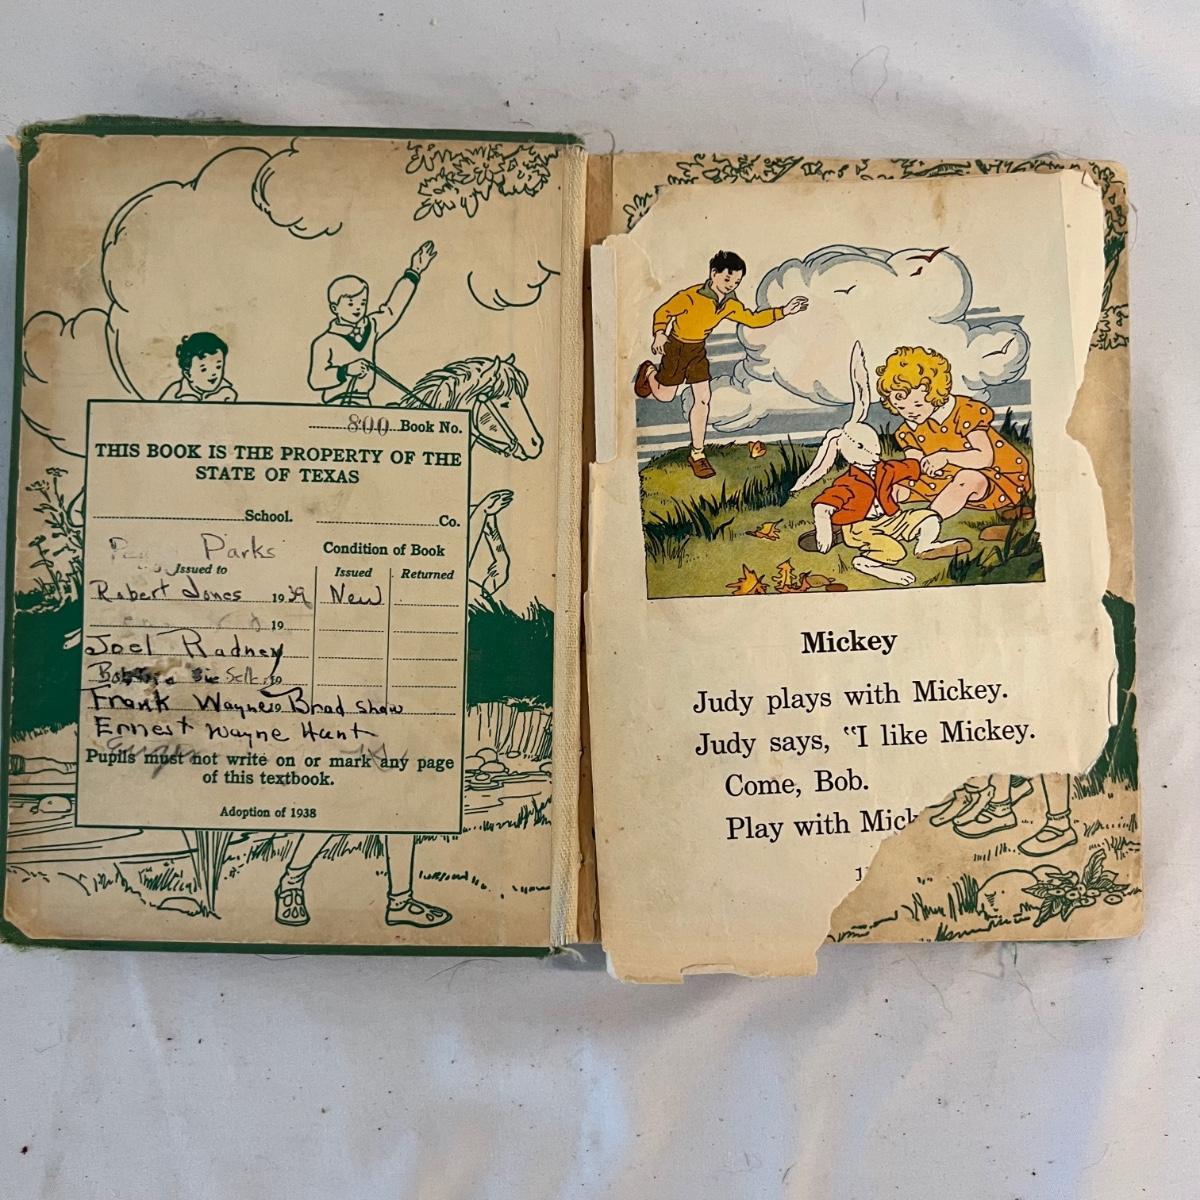 800 Book No.
THIS BOOK IS THE PROPERTY OF THE
STATE OF TEXAS
School. Co.
Parks
Condition of Book
Issued to Issued Returned
Robert Jones 1939 New
19
Joel Radney
Sue
Frank Wayne Bradshaw
Ernest Wayne Hunt
Pupils must not write on or mark any page
of this textbook.
Adoption of 1938
Mickey
Judy plays with Mickey.
Judy says, "I like Mickey.
Come, Bob.
Play with Mick
1